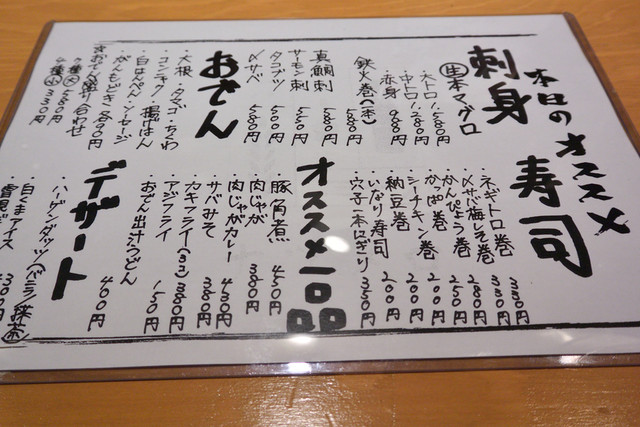 本日のオススメ
刺身
生本マグロ
・大トロ 1,580円
・中トロ 1,280円
・赤身 980円
鉄火巻(本) 580円
真鯛刺 580円
サーモン刺 580円
タコブツ 580円
〆サバ 580円
おでん
・大根・タマゴ・ちくわ
・コンニャク・揚げはん
・白はんぺん・ソーセージ
・がんもどき 各90円
☆おでん盛り合わせ
7種(大) 580円
4種(小) 330円
寿司
・ネギトロ巻 330円
・〆サバ梅しそ巻 330円
・かんぴょう巻 280円
・かっぱ巻 250円
・シーチキン巻 200円
・納豆巻 200円
・いなり寿司 200円
・穴子一本にぎり 350円
オススメ一品
・豚角煮 450円
・肉じゃが 380円
・肉じゃがカレー 430円
・サバみそ 380円
・カキフライ(5コ) 380円
・アジフライ 150円
・おでん出汁うどん 400円
デザート
・ハーゲンダッツ(バニラ・抹茶)
・白くまアイス